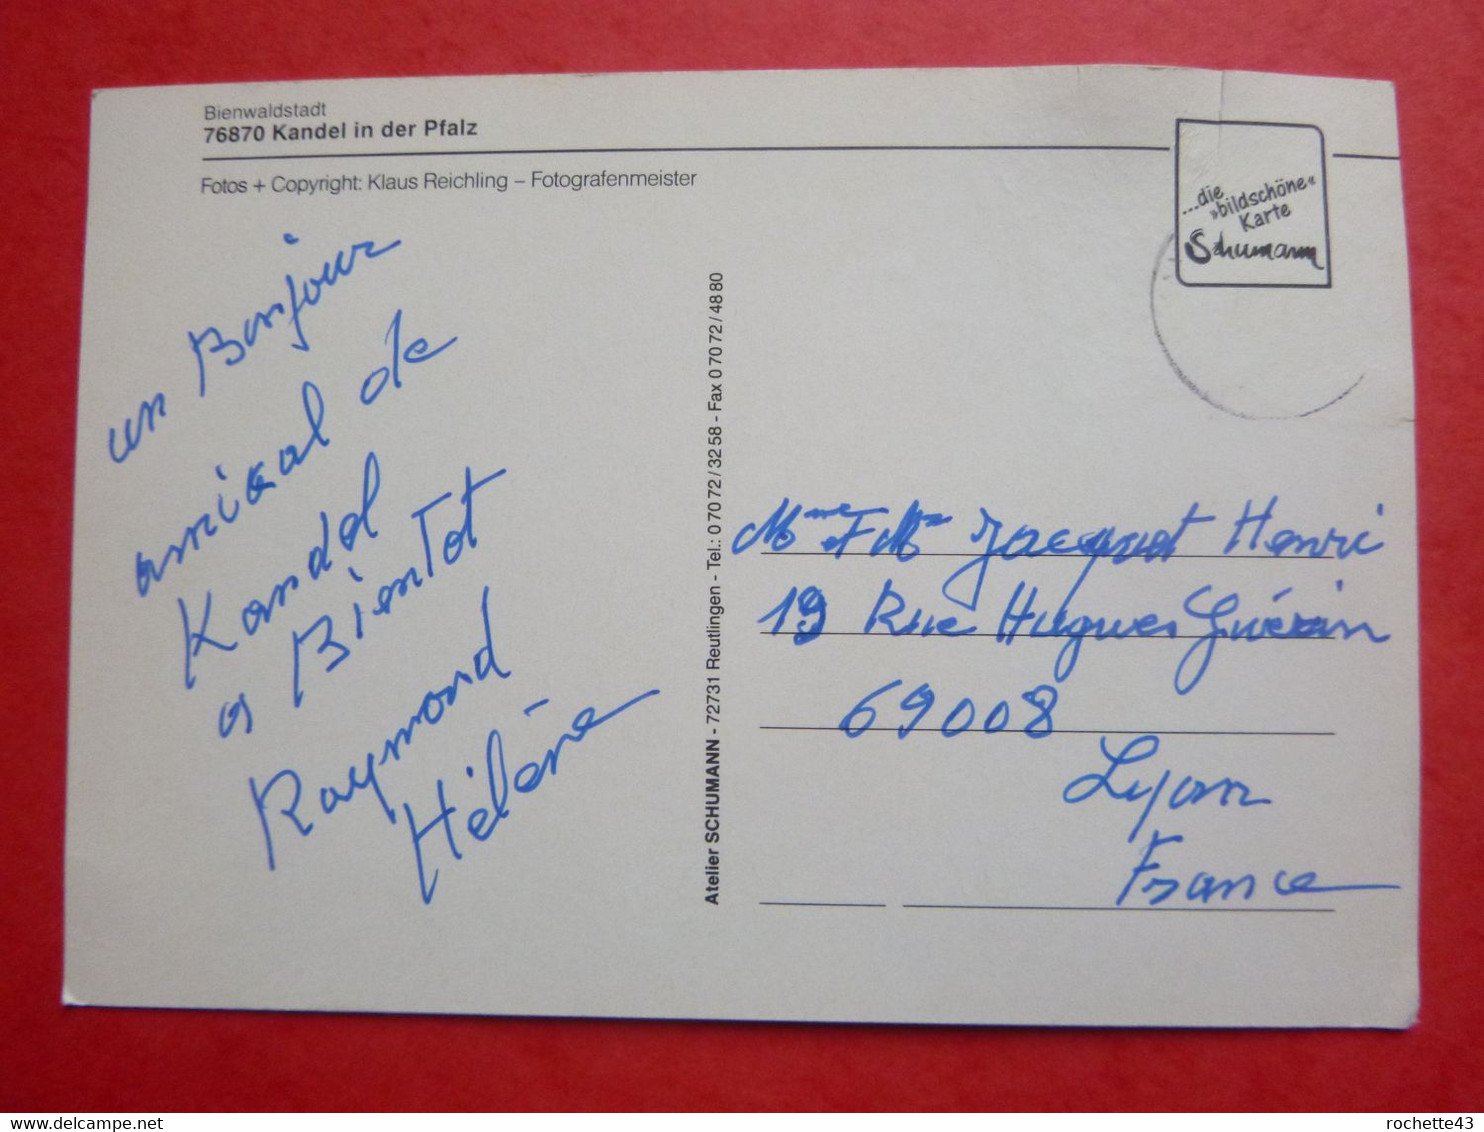 Bienwaldstadt
76870 Kandel in der Pfalz
Fotos + Copyright: Klaus Reichling – Fotografenmeister
...die
»bildschöne«
Karte
Schumann
un Bonjour
amical de
Kandel
a Bientot
Raymond
Hélène
Atelier SCHUMANN - 72731 Reutlingen - Tel.: 0 70 72 / 32 58 - Fax 0 70 72 / 48 80
Mme et Mr Jacquot Henri
19 Rue Hugues Guérin
69008
Lyon
France
rochette43